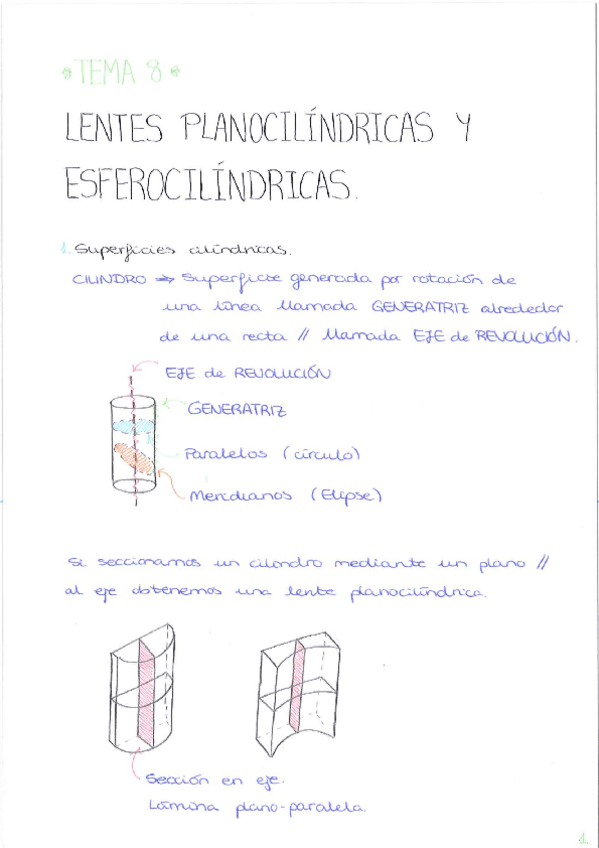 TEMA 8
LENTES PLANOCILÍNDRICAS Y
ESFEROCILÍNDRICAS.
1. Superficies cilíndricas.
CILINDRO => Superficie generada por rotación de
una línea llamada GENERATRIZ alrededor
de una recta // llamada EJE de REVOLUCIÓN.
EJE de REVOLUCIÓN
GENERATRIZ
Paralelos (círculo)
Meridianos (Elipse)
Si seccionamos un cilondro mediante un plano //
al eje obtenemos una lente planocilíndrica.
Sección en eje.
Lámina plano-paralela.
1.